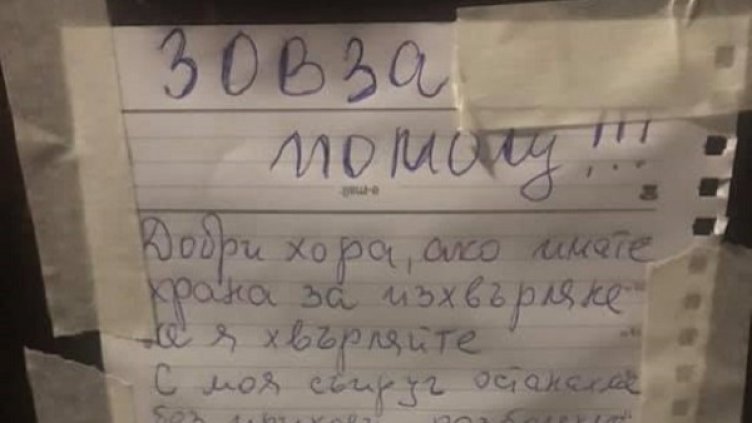 ЗОВ ЗА
помощ!!!
Добри хора, ако имате
храна за изхвърляне
не я хвърляйте
С моя съпруг останахме
без